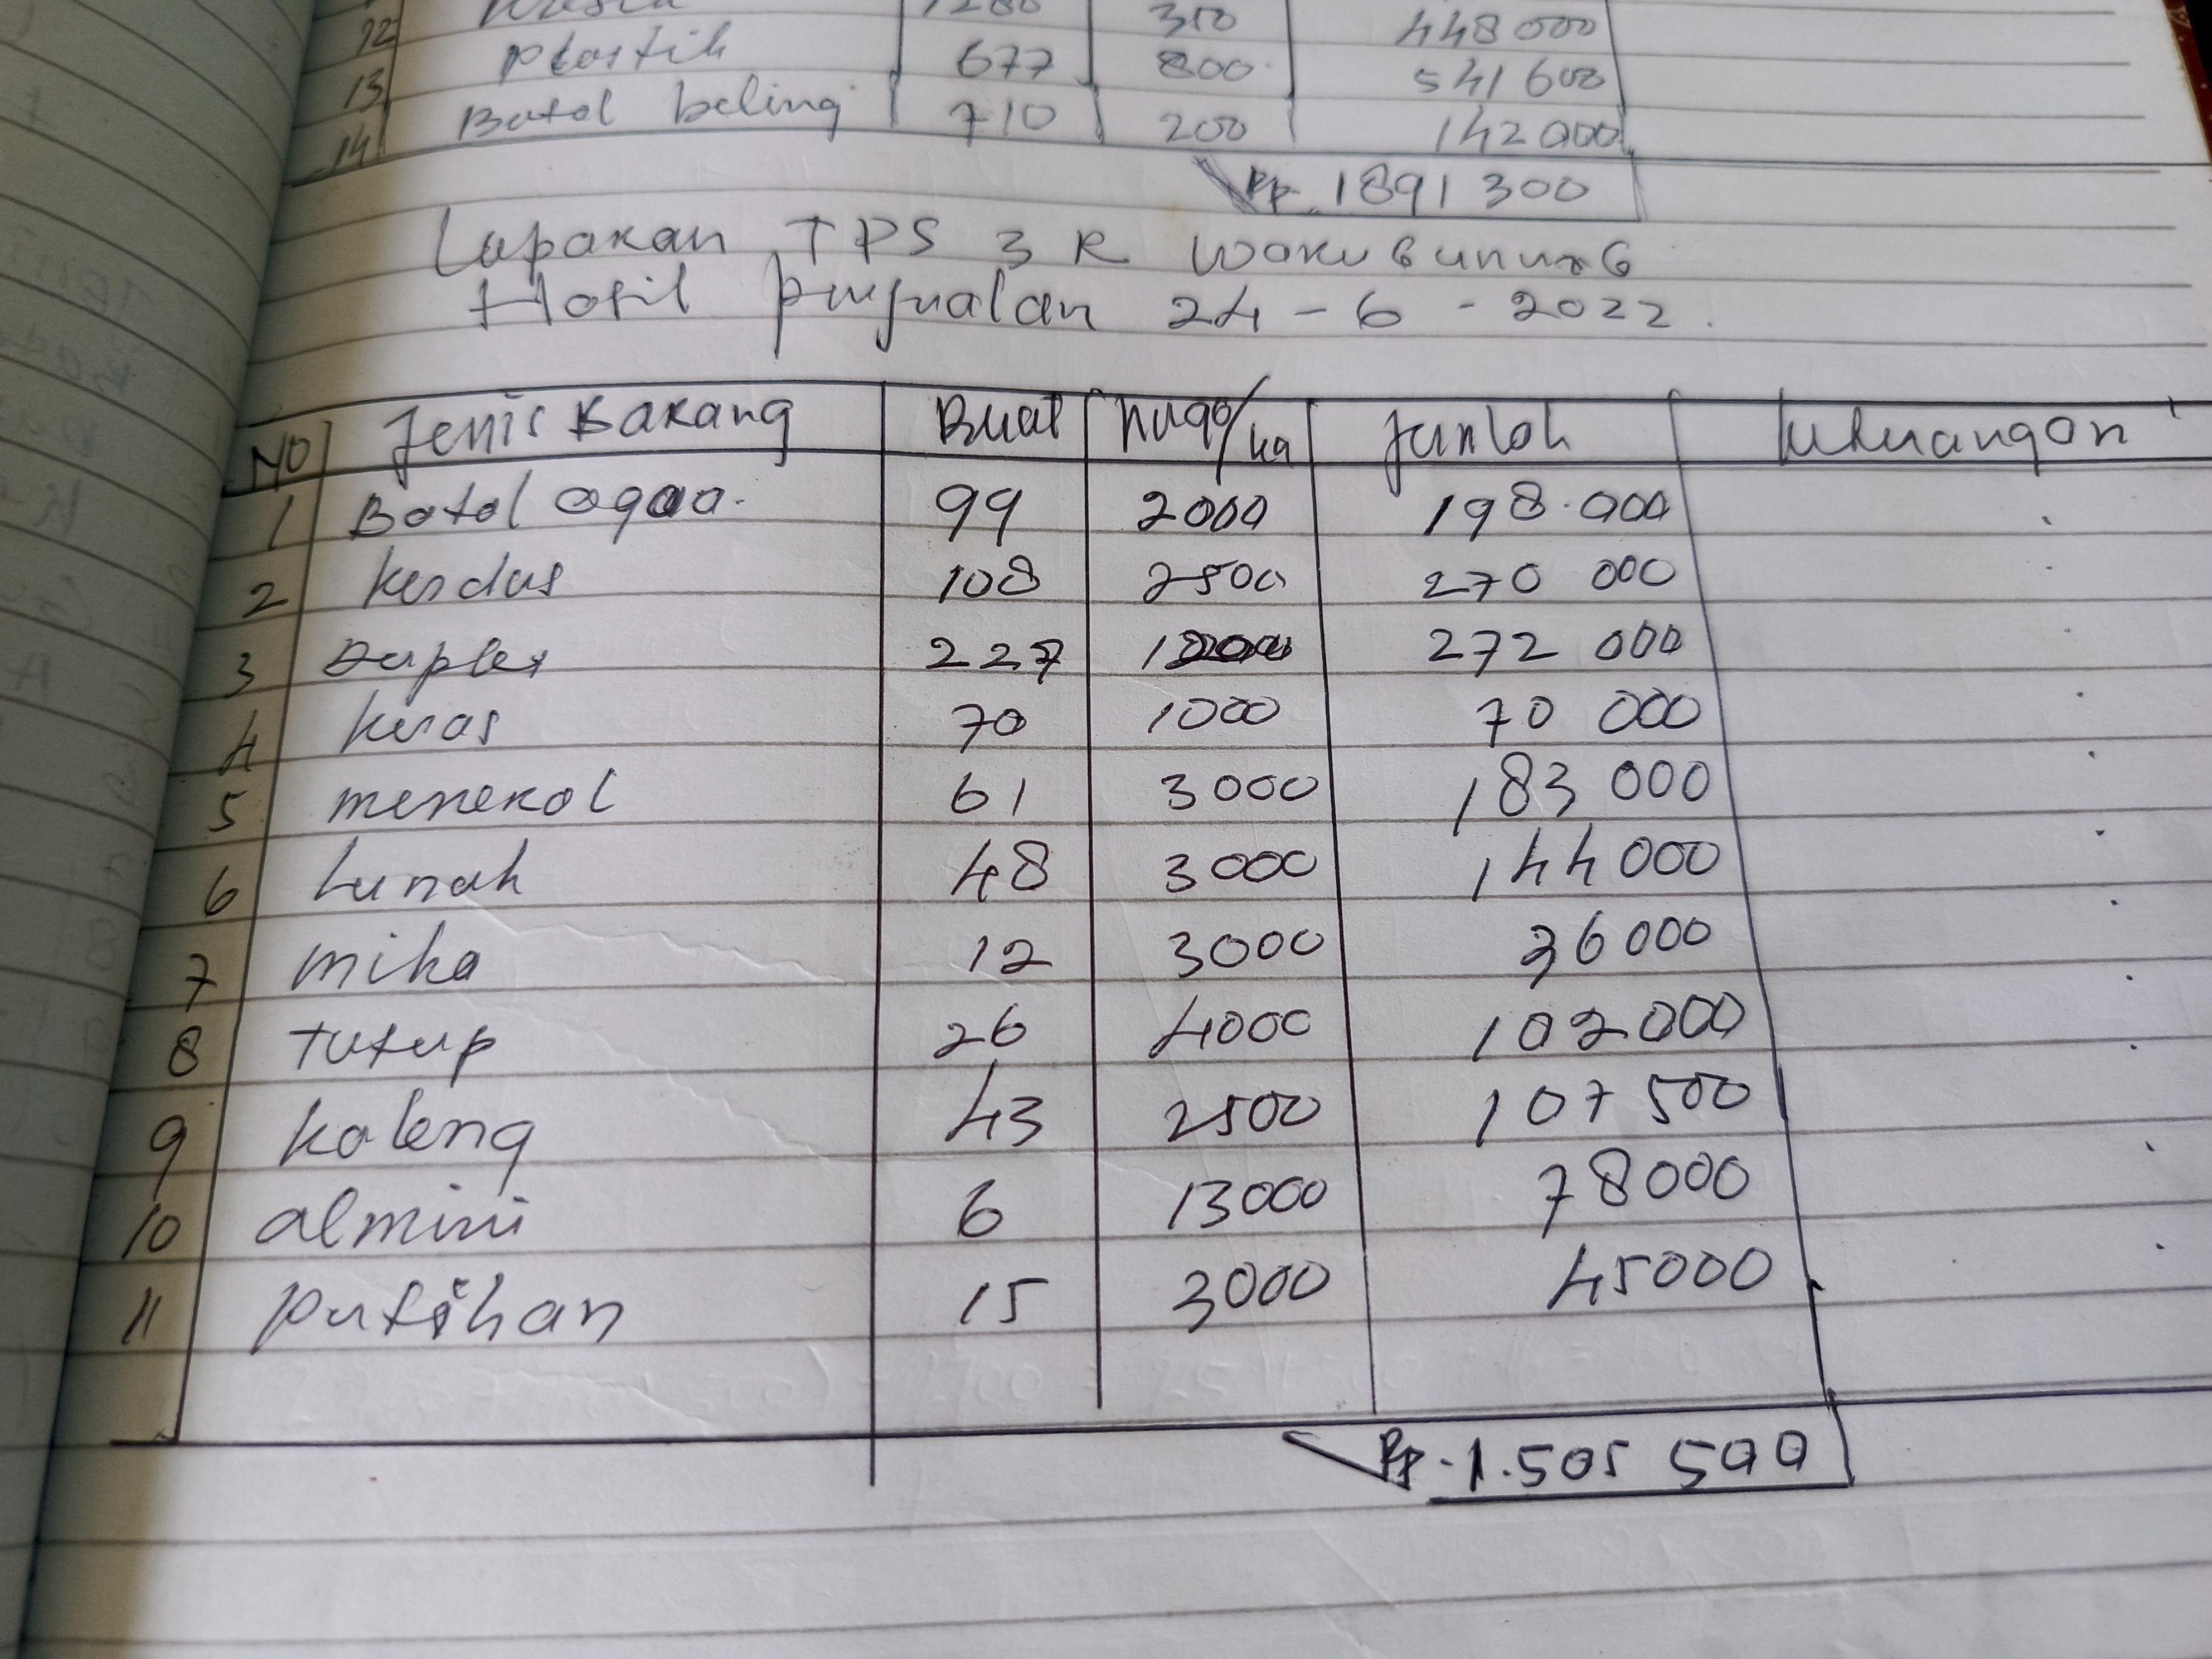 12 1280 350 448 000
13 Plastik 677 800 541 600
14 Botol beling 710 200 142 000
Rp. 1891 300
Laporan TPS 3 R
Hasil penjualan 24 - 6 - 2022.
NO Jenis Barang Berat harga/kg Jumlah keterangan
1 Botol aqua. 99 2000 198.000
2 kerdus 108 2500 270 000
3 Duplex 227 1200 272 000
4 keras 70 1000 70 000
5 menekol 61 3000 183 000
6 Lunak 48 3000 144 000
7 mika 12 3000 36 000
8 Tutup 26 4000 102 000
9 kaleng 43 2500 107 500
10 almini 6 13000 78000
11 putihan 15 3000 45000
Rp. 1.505 500